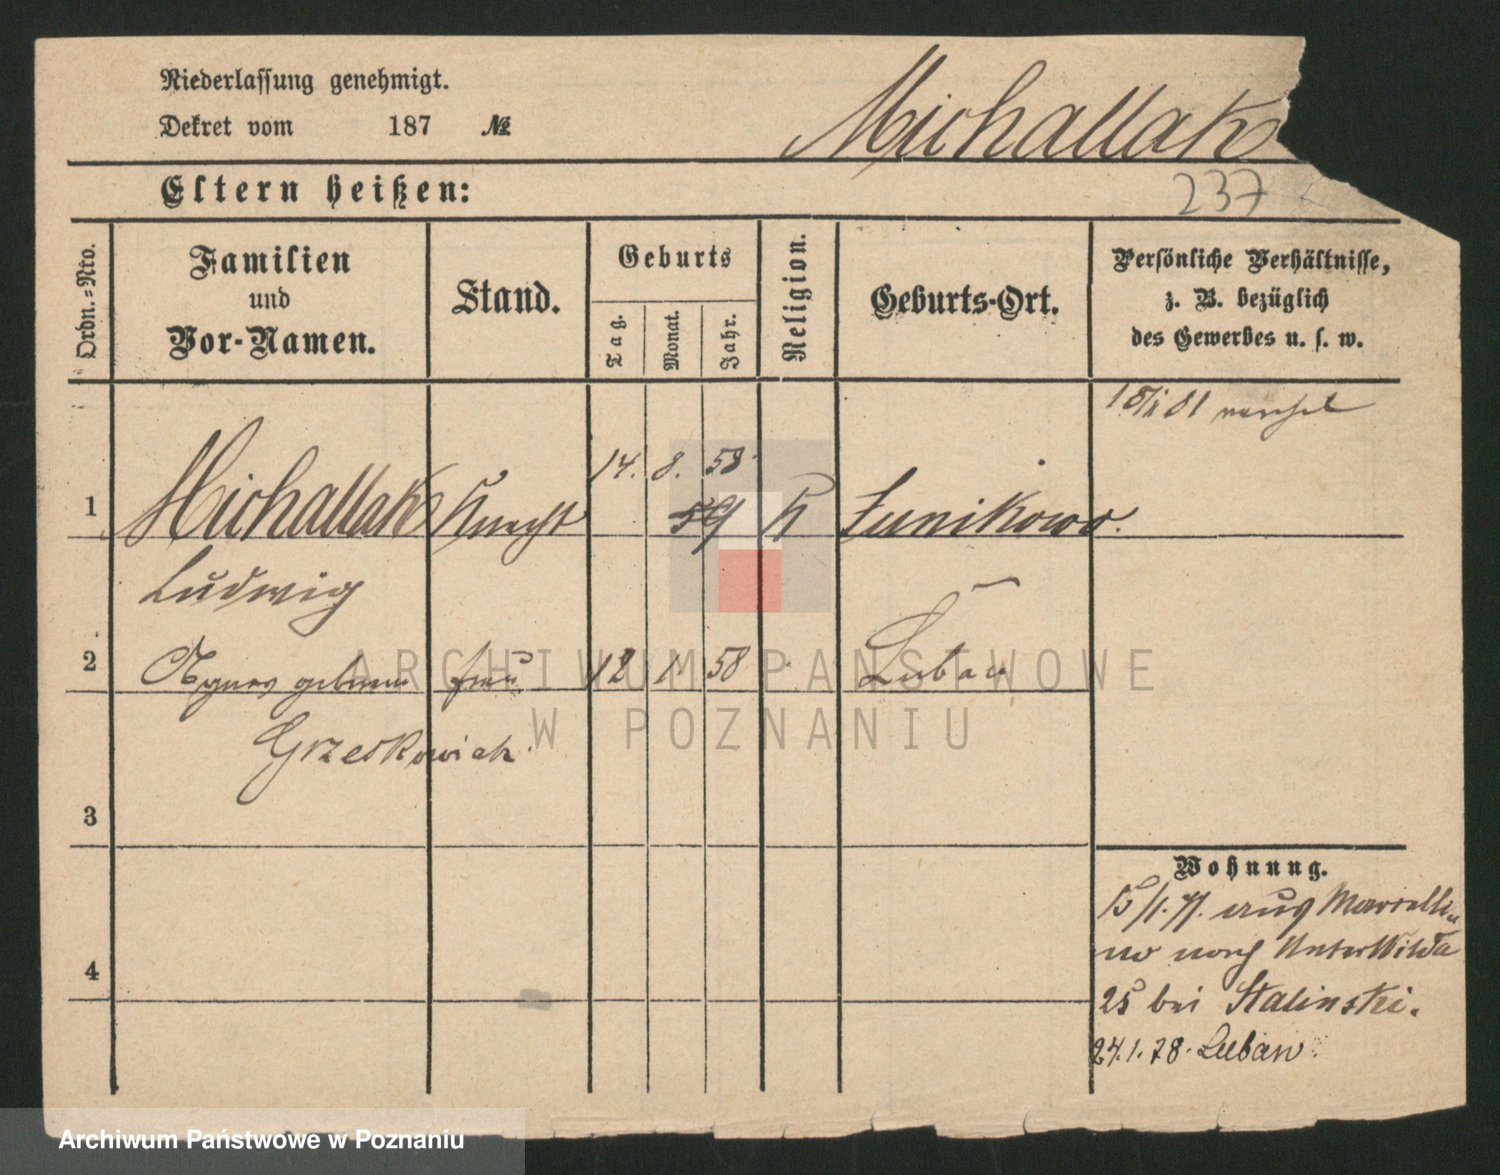 Niederlassung genehmigt.
Dekret vom 187 №
Michallak
Eltern heißen:
237
Ordn.=Nro.
Familien
und
Vor-Namen.
Stand.
Geburts
Tag.
Monat.
Jahr.
Religion.
Geburts-Ort.
Persönliche Verhältnisse,
z. B. bezüglich
des Gewerbes u. s. w.
81
14. 8. 58
1 Michallak Knecht 59 K Junikowo.
Ludwig
2 Agnes geborene Frau 12 1 58 Luban
Grzeskowiak
3
4
Wohnung.
15/1. 77. aus Marcelli
no nach Unter Wilda
25 bei Stalinski.
24.1.78. Luban
ARCHIWUM PAŃSTWOWE
W POZNANIU
Archiwum Państwowe w Poznaniu